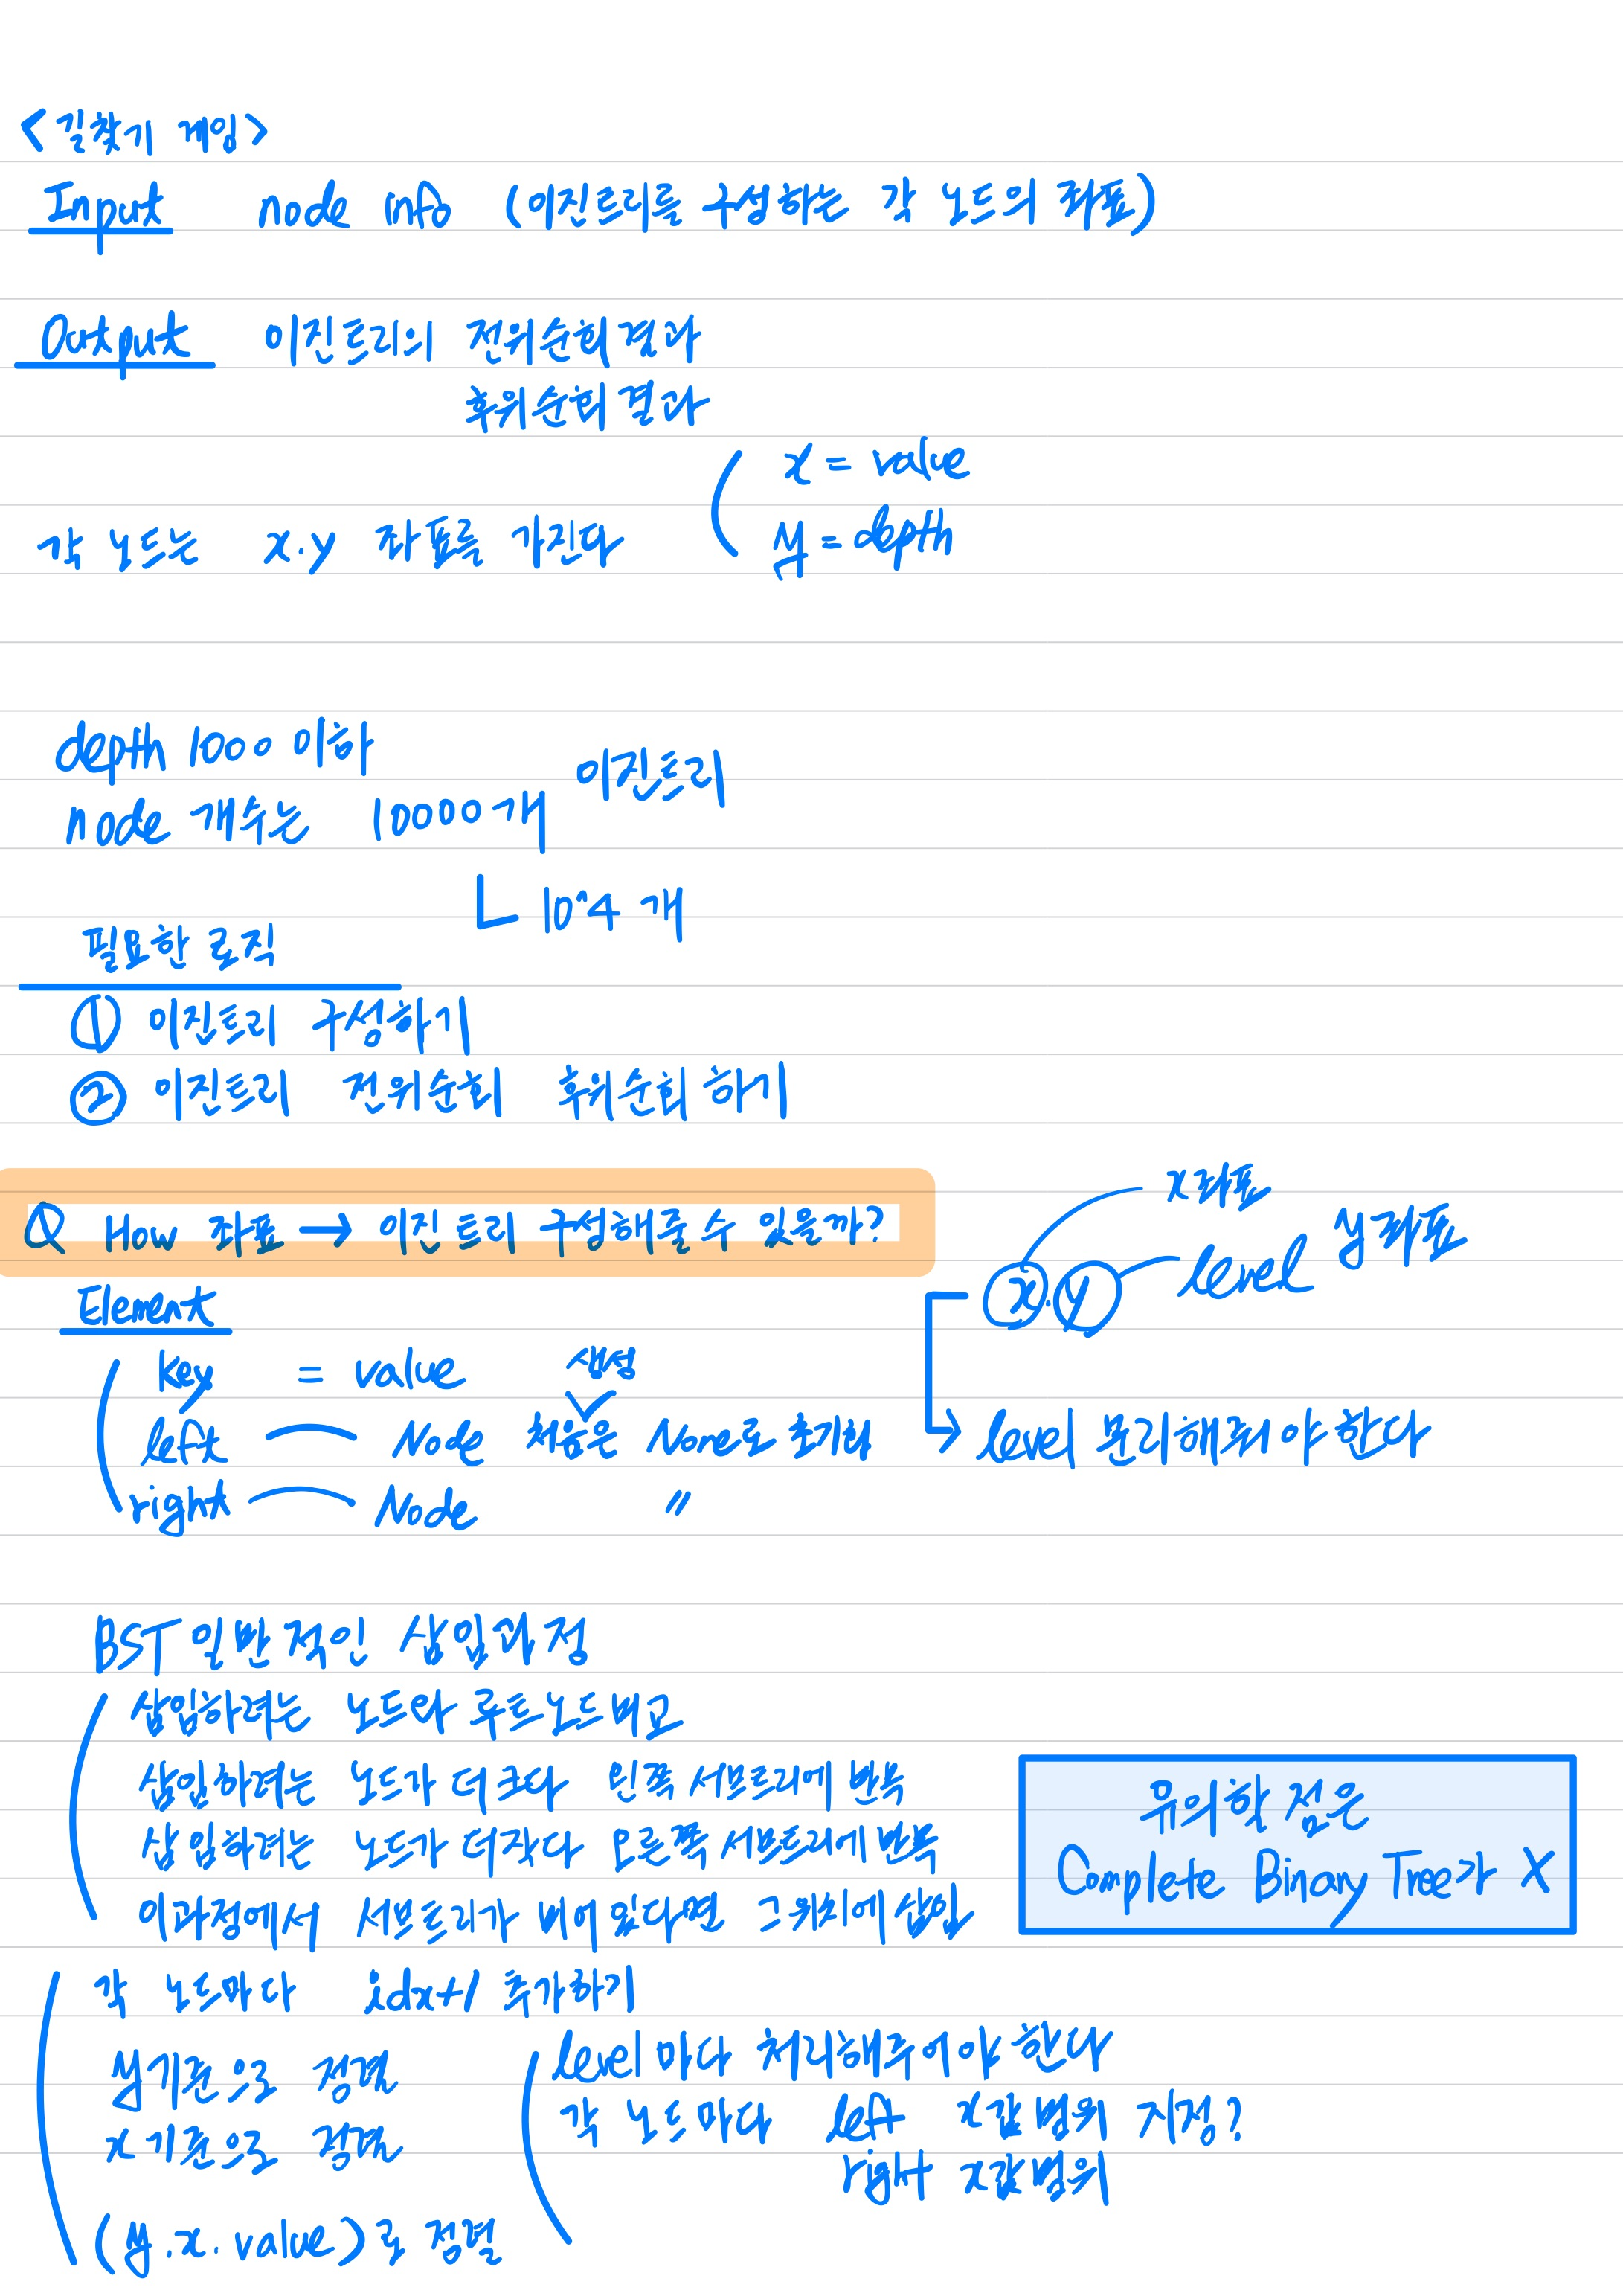 <길찾기 게임>
Input node info (이진트리를 구성하는 각 노드의 좌표)
Output 이진트리의 전위순회결과
후위순회결과
x = value
각 노드는 x.y 좌표를 가진다
y = depth
depth 1000 이하
node 개수는 10000개 이진트리
10^4 개
필요한 로직
① 이진트리 구성하기
② 이진트리 전위순회 후위순회 하기
Q How 좌표 → 이진트리 구성해줄 수 있을까?
x좌표
x.y level y좌표
Element
key = value 생성
left Node 처음은 None로 초기화
level 분리해줘야 한다
right Node 〃
BST 일반적인 삽입과정
삽입하려는 노드와 루트노드비교
삽입하려는 노드가 더 크다 왼쪽 서브트리에 반복
삽입하려는 노드가 더작다 오른쪽 서브트리에 반복
이과정에서 서브트리가 비어있다면 그위치에 삽입
유의할 점은
Complete Binary Tree가 X
각 노드마다 idx+1 추가하기
y기준으로 정렬
x기준으로 정렬
(y.x.value)로 정렬
level 마다 처리해주어야 한다
각 노드마다 left x값 범위 지정?
right x값 범위